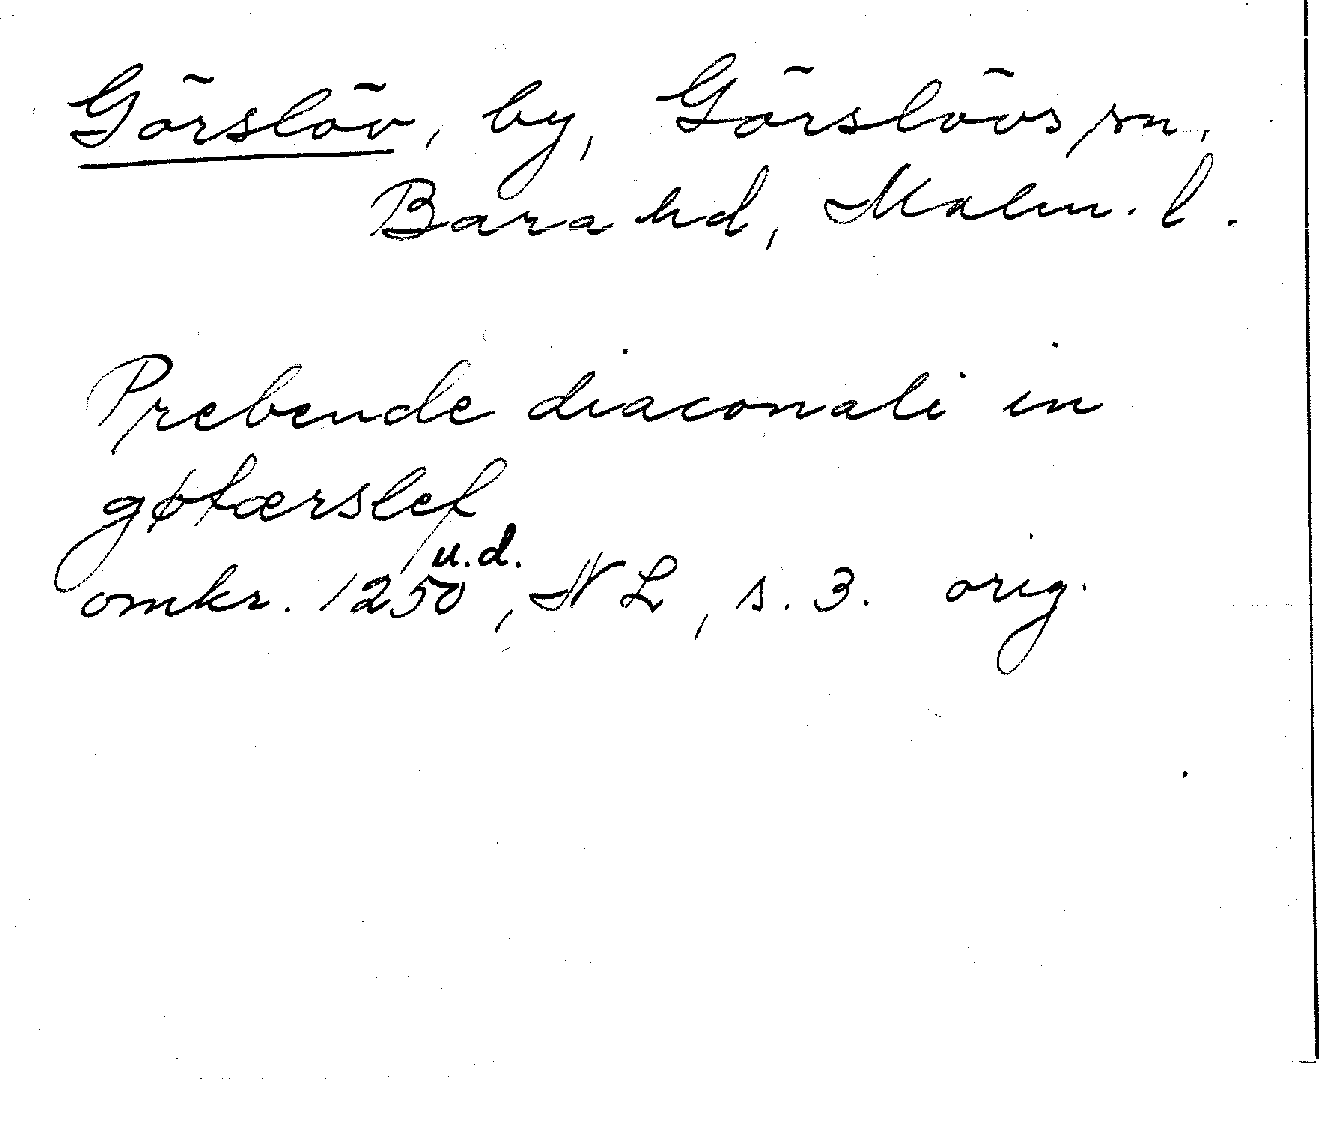 Görslöv, by, Görslövs sn,
Bara hd, Malm. l.
Prebende diaconali in
gøtærslef
omkr. 1250 u.d., NL, s. 3. orig.